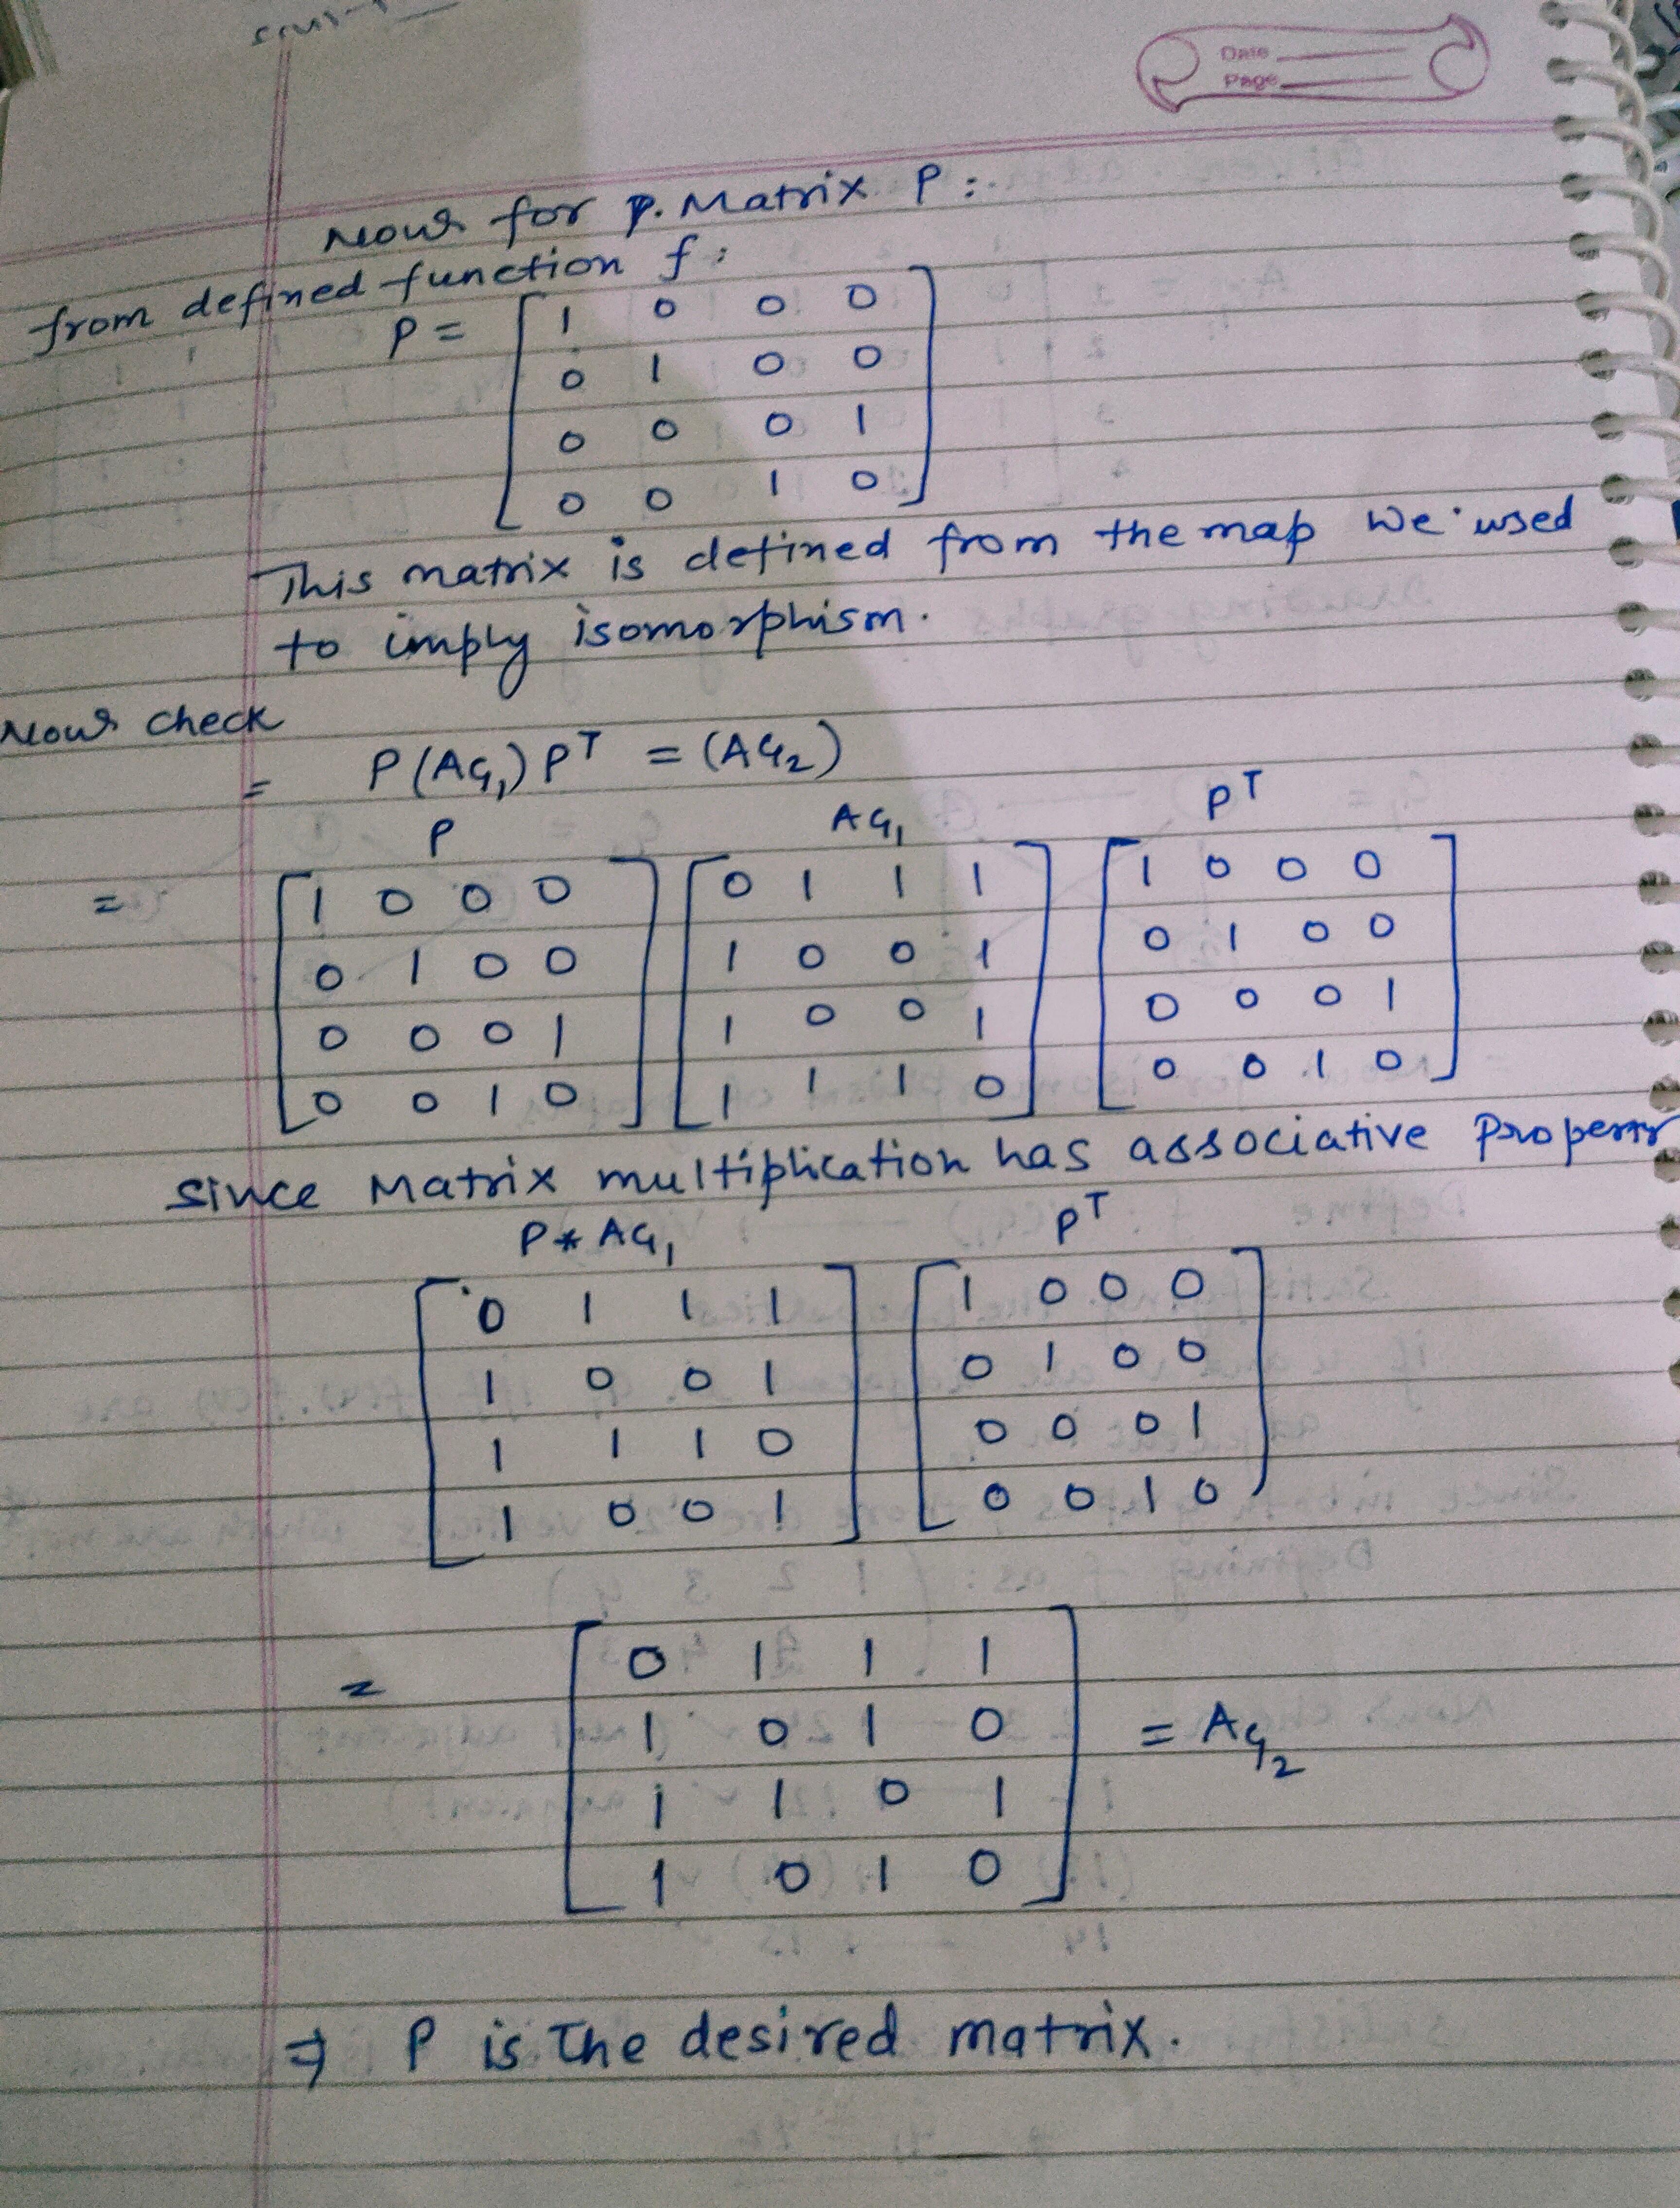 Date
Page
Now for p. Matrix P :
from defined function f :
P = [ 1 0 0 0
0 1 0 0
0 0 0 1
0 0 1 0 ]
This matrix is defined from the map we used
to imply isomorphism.
Now check
= P(AG₁)Pᵀ = (AG₂)
P AG₁ Pᵀ
= [ 1 0 0 0 ] [ 0 1 1 1 ] [ 1 0 0 0 ]
0 1 0 0 1 0 0 1 0 1 0 0
0 0 0 1 1 0 0 1 0 0 0 1
0 0 1 0 1 1 1 0 0 0 1 0
since Matrix multiplication has associative Property
P * AG₁ Pᵀ
[ 0 1 1 1 ] [ 1 0 0 0 ]
1 0 0 1 0 1 0 0
1 1 1 0 0 0 0 1
1 0 0 1 0 0 1 0
= [ 0 1 1 1 ]
1 0 1 0 = AG₂
1 1 0 1
1 0 1 0
⇒ P is The desired matrix.